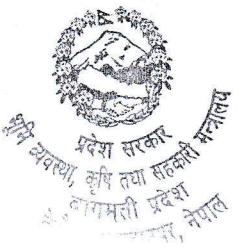 प्रदेश सरकार
भूमि व्यवस्था, कृषि तथा सहकारी मन्त्रालय
बागमती प्रदेश
नेपाल